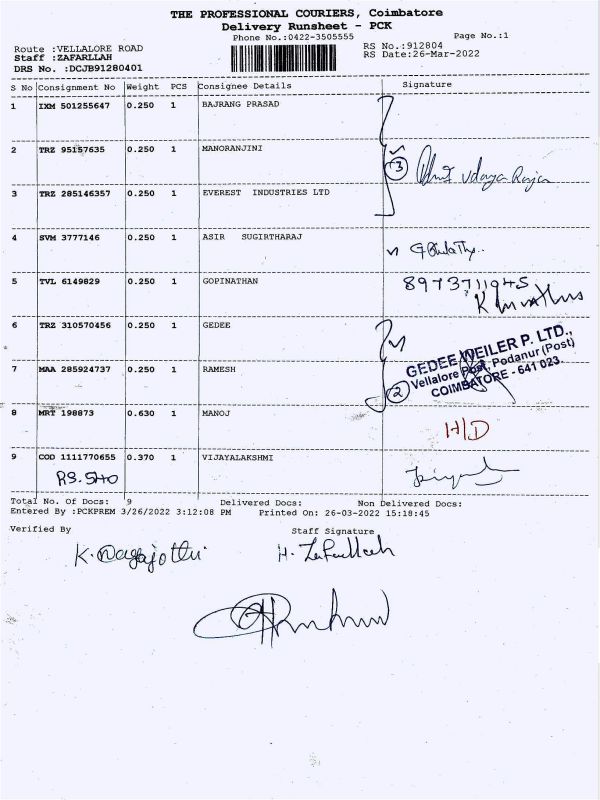 THE PROFESSIONAL COURIERS, Coimbatore
Delivery Runsheet - PCK
Phone No.:0422-3505555
Page No.:1
Route :VELLALORE ROAD
RS No.:912804
Staff :ZAFARLLAH
RS Date:26-Mar-2022
DRS No. :DCJB91280401
S No Consignment No Weight PCS Consignee Details Signature
1 IXM 501255647 0.250 1 BAJRANG PRASAD
2 TRZ 95157635 0.250 1 MANORANJINI
3 Udaya Raja
3 TRZ 285146357 0.250 1 EVEREST INDUSTRIES LTD
4 SVM 3777146 0.250 1 ASIR SUGIRTHARAJ
5 TVL 6149829 0.250 1 GOPINATHAN 8973711945
6 TRZ 310570456 0.250 1 GEDEE
GEDEE WEILER P. LTD.,
Vellalore Post, Podanur (Post)
COIMBATORE - 641 023.
7 MAA 285924737 0.250 1 RAMESH
2
8 MRT 198873 0.630 1 MANOJ H/D
9 COD 1111770655 0.370 1 VIJAYALAKSHMI
RS. 540
Total No. Of Docs: 9 Delivered Docs: Non Delivered Docs:
Entered By :PCKPREM 3/26/2022 3:12:08 PM Printed On: 26-03-2022 15:18:45
Verified By Staff Signature
K. Nagajothi H. Zafarllah